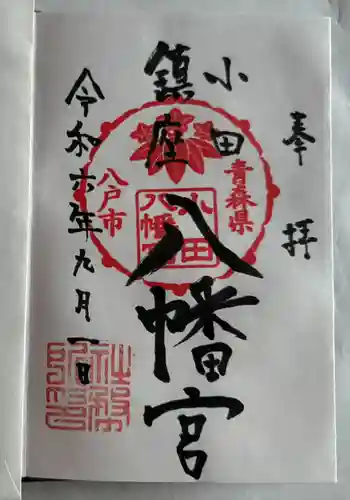 奉拝
小田
鎮座
八幡宮
令和六年九月一日
青森県
八戸市
小田
八幡宮
社務所印